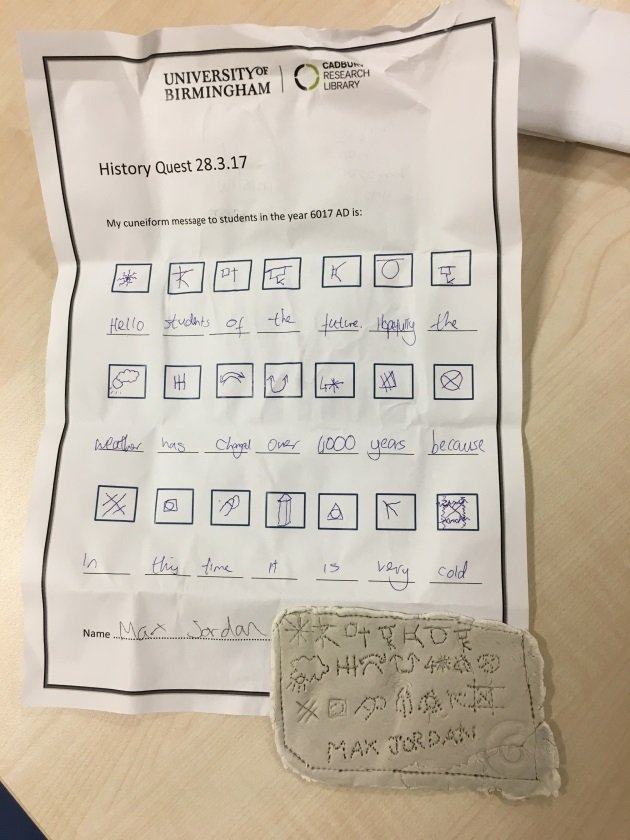 UNIVERSITY OF
BIRMINGHAM
CADBURY
RESEARCH
LIBRARY
History Quest 28.3.17
My cuneiform message to students in the year 6017 AD is:
Hello students of the future. Hopefully the
weather has changed over 4000 years because
In this time it is very cold
Name Max Jordan
MAX JORDAN